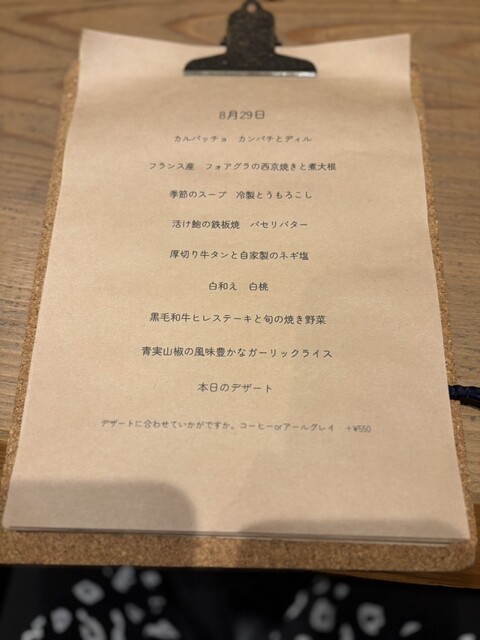 8月29日
カルパッチョ　カンパチとディル
フランス産　フォアグラの西京焼きと煮大根
季節のスープ　冷製とうもろこし
活け鮑の鉄板焼　パセリバター
厚切り牛タンと自家製のネギ塩
白和え　白桃
黒毛和牛ヒレステーキと旬の焼き野菜
青実山椒の風味豊かなガーリックライス
本日のデザート
デザートに合わせていかがですか。コーヒーorアールグレイ　+¥550